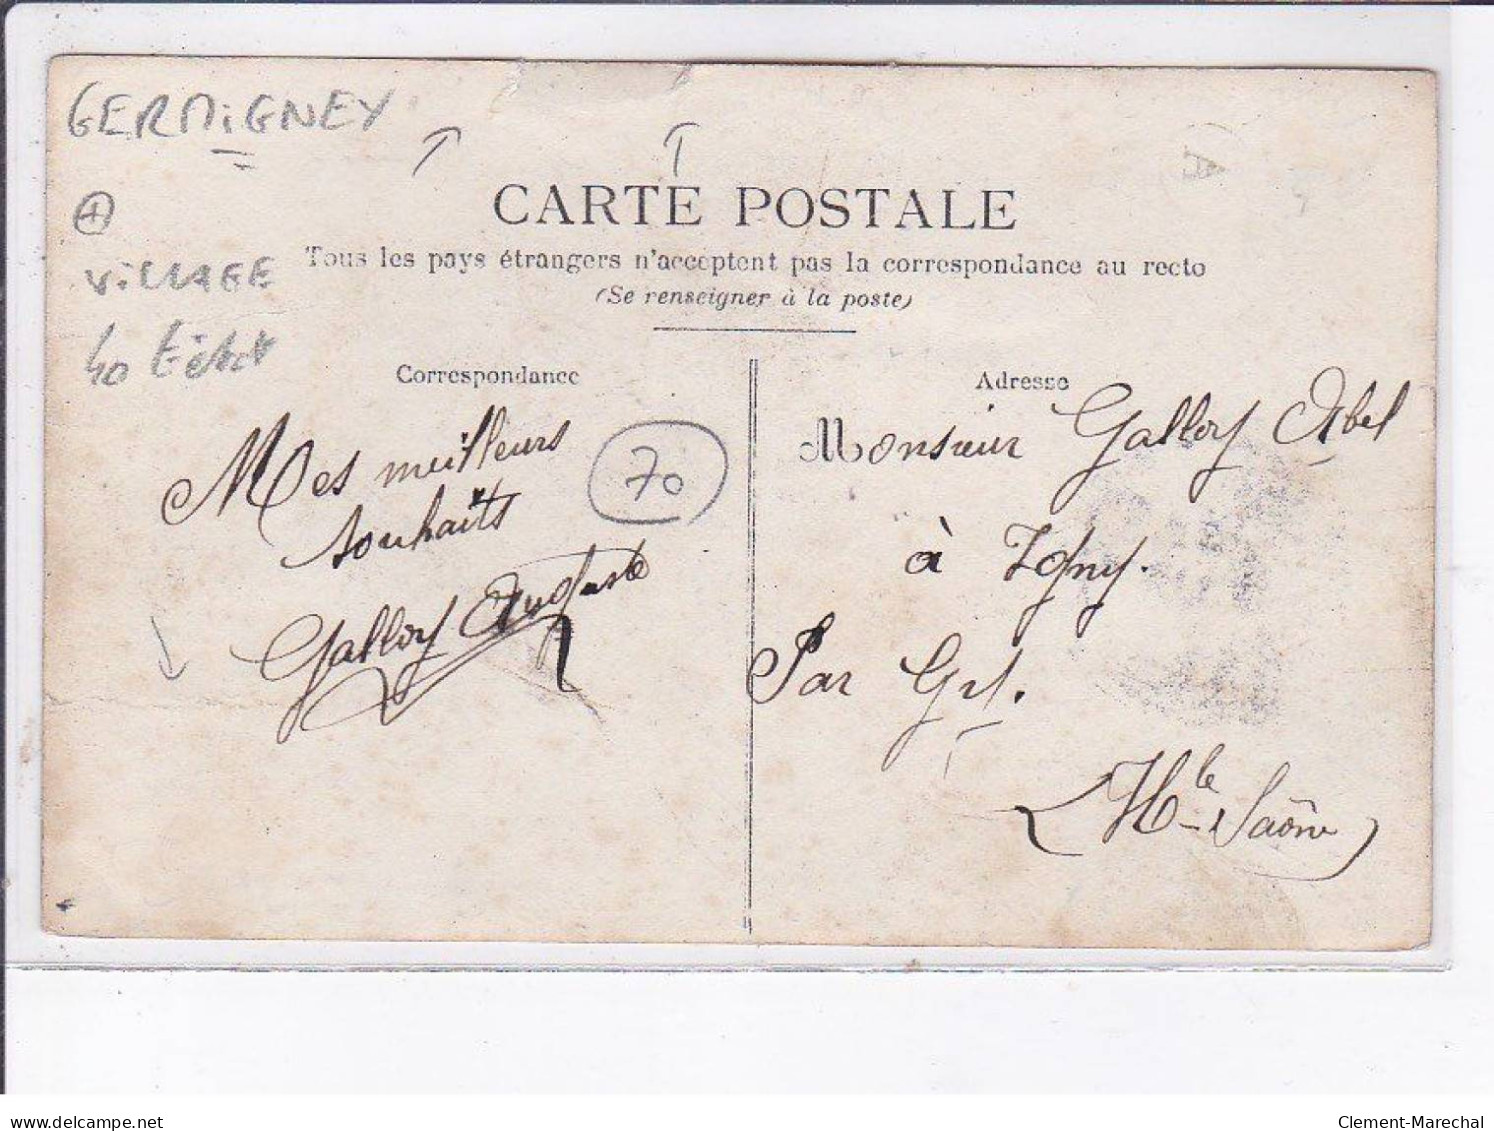 GERMIGNEY
CARTE POSTALE
Tous les pays étrangers n'acceptent pas la correspondance au recto
(Se renseigner à la poste)
VILLAGE
40
Correspondance
Adresse
Mes meilleurs
souhaits
70
Galloy Auguste
Monsieur Galloy Abel
à Igny.
Par Gy.
(Hte Saône)
www.delcampe.net
Clement-Marechal